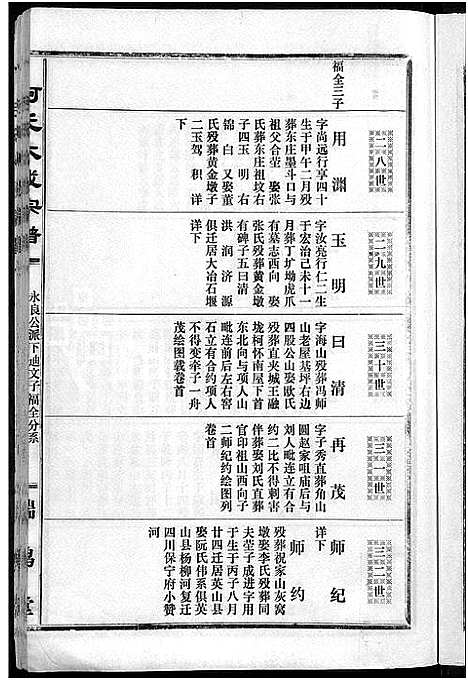 福全三子
二八世
用渊
字尚远行享四十
生于甲午二月殁
葬东庄墨斗口与
祖父合茔 娶张
氏葬东庄祖坟右
子四玉 明 右
锦 白 又娶董
氏殁葬黄金墩子
二玉驾 积 详
下
二九世
玉明
字汝亮行仁二生
于宏治己未十一
月葬丁圹坳虎爪
有墓志西向 娶
张氏殁葬黄金墩
有碑子五曰清
洪 润 济 源
俱迁居大冶石堰
详下
三十世
曰清
字海山殁葬冯师
山老屋基坪右边
四股公山娶欧氏
殁葬直夹城王融
垅柯怀南屋下首
东北向与项人山
毗连前后左右窖
石立有合约项人
不得变牵子一舟
茂绘图载卷首
三一世
再茂
字子秀直葬角山
圆赵家咀庙后与
刘人毗连立有合
约二比不得刺害
伴葬娶刘氏直葬
官印祖山西向子
二师纪约绘图列
卷首
三二世
师纪
详下
师约
殁葬祝家山灰窝
墩娶李氏殁葬同
夫茔子成进字用
于生于丙子八月
廿四迁居英山县
娶阮氏伟系俱英
山县杨柳河复迁
四川保宁府小赞
河
永良公派下迪文子福全分系